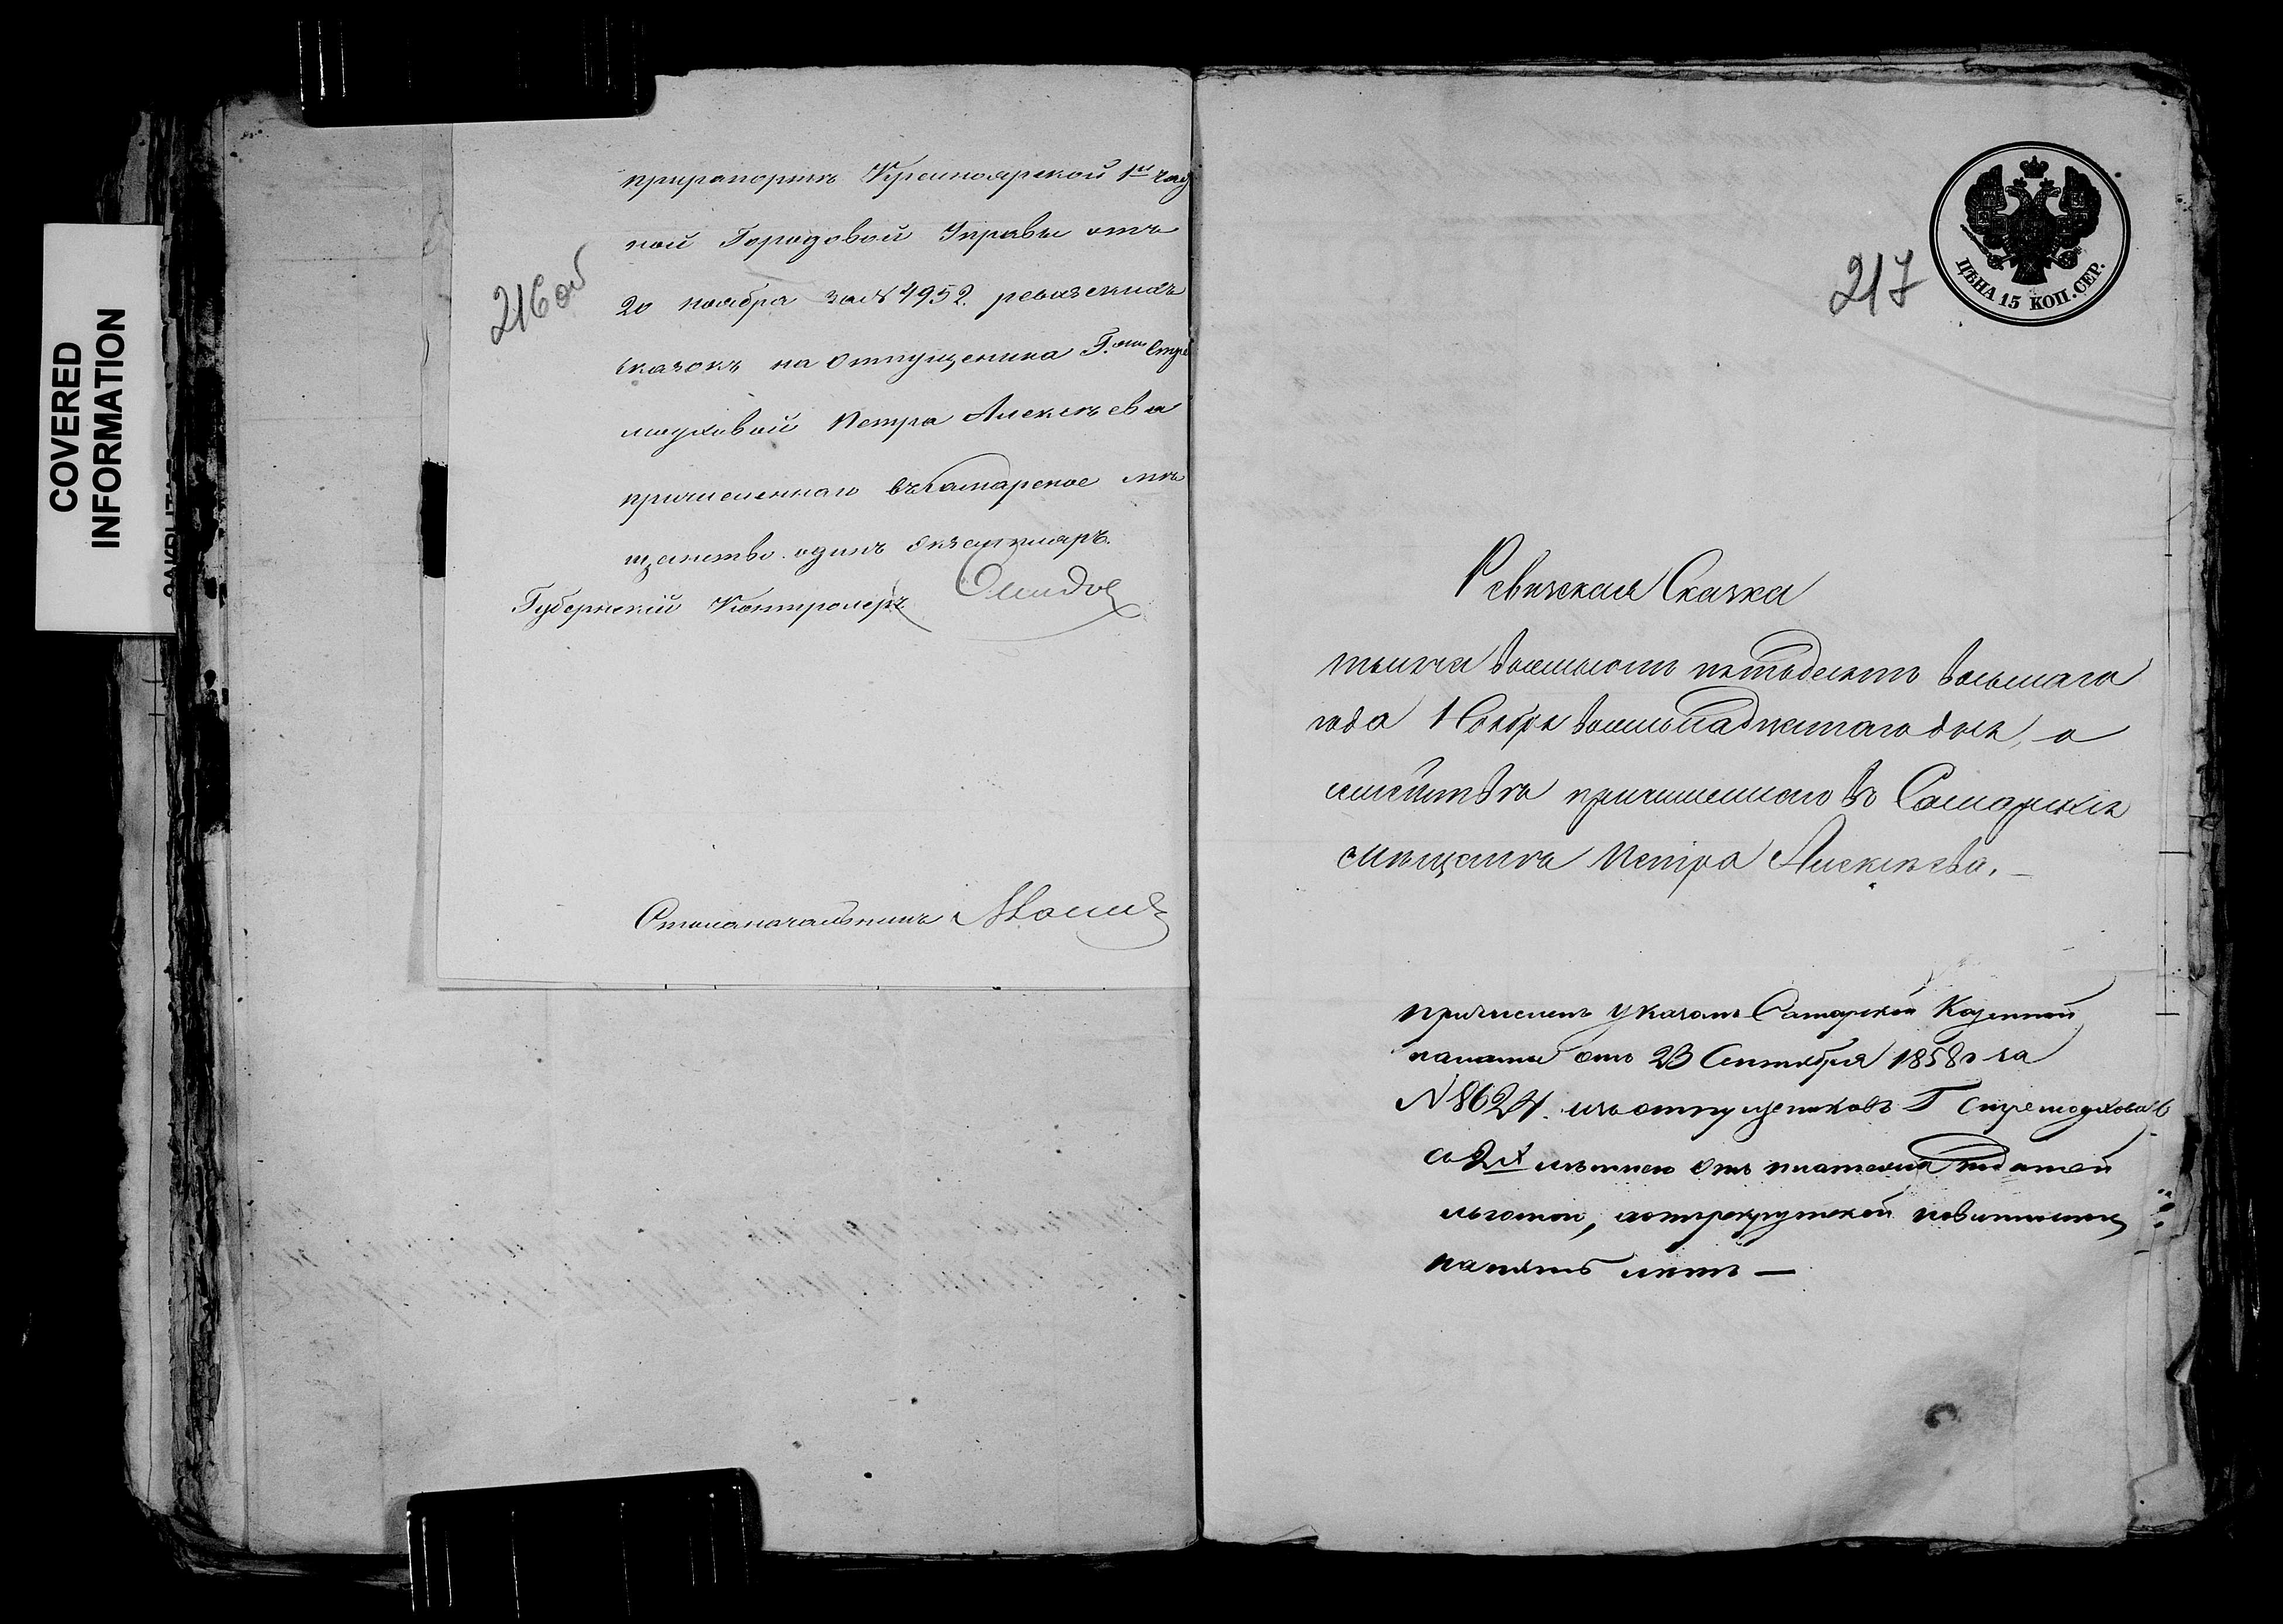 COVERED
INFORMATION
216 об
прирапортѣ Красноярской 1й
ной Городовой Управы отъ
20 ноября за № 4952. ревизскихъ
сказокъ на отпущенника Г.жи Стре
моуховой Петра Алексѣева
причисленнаго въ Самарское мѣ
щанство одинъ экземпляръ.
Губернскій Контролеръ
Столоначальникъ
217
ЦѢНА 15 КОП. СЕР.
Ревизская Сказка
тысяча восемьсотъ пятьдесятъ восьмаго
года Ноября восемьнадцатаго дня, о
причисленнаго въ Самарскіе
мѣщане Петра Алексѣева.
причисленъ указомъ Самарской Казенной
палаты отъ 23 Сентября 1858 г за
№ 8624. изъ отпущениковъ Г Стремоуховой
съ 2х лѣтнею отъ платежа податей
льготой, а отрекрутской повинности
напять лѣтъ —